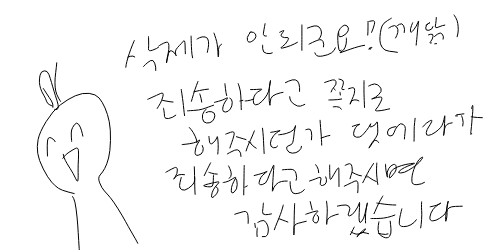 삭제가 안되군요!(깨닮)
죄송하다고 쪽지로
해주시던가 댓에라자
죄송하다고해주시면
감사하겠습니다